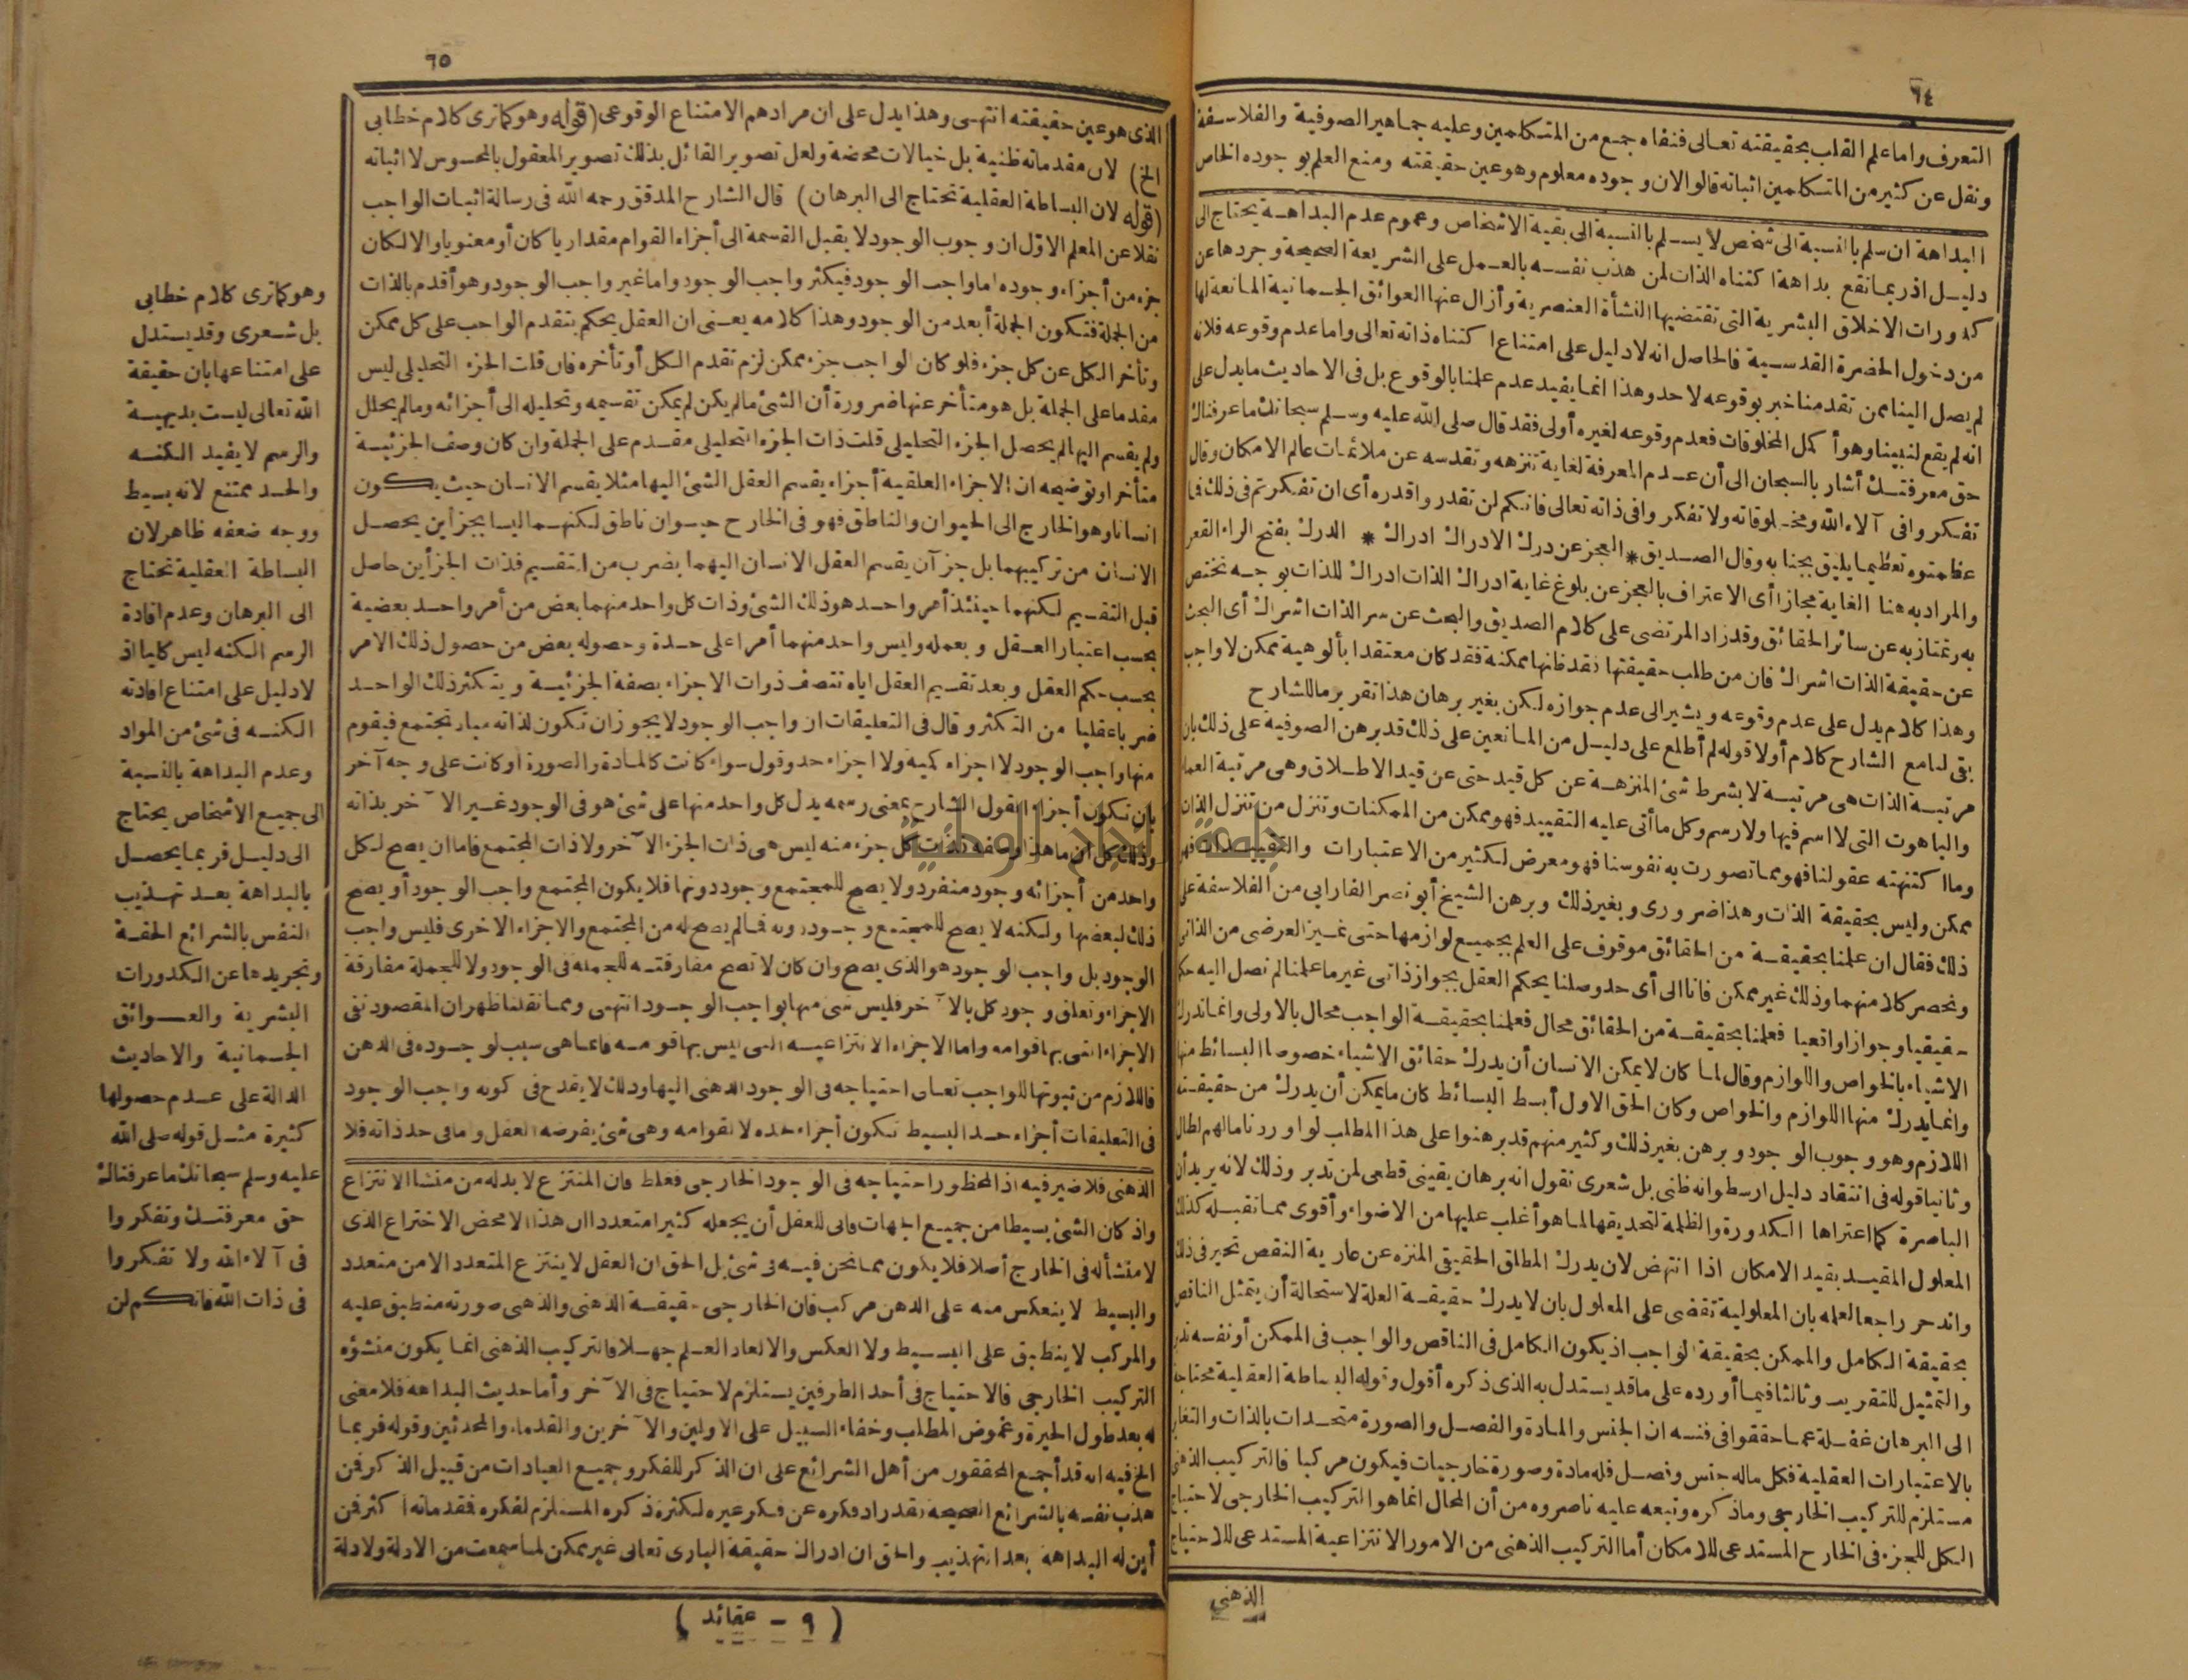 ٦٤
التعرف واما علم القلب بحقيقته تعالى فنفاه جمع من المتكلمين وعليه جماهير الصوفية والفلاسفة
ونقل عن كثير من المتكلمين اثباته قالوا لان وجوده معلوم وهو عين حقيقته ومنع العلم بوجوده الخاص
البداهة ان سلم بالنسبة الى شخص لا يسلم بالنسبة الى بقية الاشخاص وعموم عدم البداهة يحتاج الى
دليل اذ ربما تقع بداهة اكتناه الذات لمن هذب نفسه بالعمل على الشريعة الصحيحة وجردها عن
كدورات الاخلاق البشرية التى تقتضيها النشأة العنصرية وأزال عنها العوائق الجسمانية المانعة لها
من دخول الحضرة القدسية فالحاصل انه لا دليل على امتناع اكتناه ذاته تعالى واما عدم وقوعه فلانه
لم يصل الينا ممن تقدمنا خبر بوقوعه لاحد وهذا انما يفيد عدم علمنا بالوقوع بل فى الاحاديث ما يدل على
انه لم يقع لنبينا وهو أكمل المخلوقات فعدم وقوعه لغيره أولى فقد قال صلى الله عليه وسلم سبحانك ما عرفناك
حق معرفتك أشار بالسبحان الى أن عدم المعرفة لغاية تنزهه وتقدسه عن ملائمات عالم الامكان وقال
تفكروا فى آلاء الله ومخلوقاته ولا تفكروا فى ذاته تعالى فانكم لن تقدروا قدره أى ان تفكرتم فى ذلك فما
عظمتوه تعظيما يليق بجنابه وقال الصديق * العجز عن درك الادراك ادراك * الدرك بفتح الراء القعر
والمراد به هنا الغاية مجازا أى الاعتراف بالعجز عن بلوغ غاية ادراك الذات ادراك للذات بوجه تختص
به وتمتاز به عن سائر الحقائق وقد زاد المرتضى على كلام الصديق والبحث عن سر الذات اشراك أى البحث
عن حقيقة الذات اشراك فان من طلب حقيقتها فقد ظنها ممكنة فقد كان معتقدا بألوهية ممكن لا واجب
وهذا كلام يدل على عدم وقوعه ويشير الى عدم جوازه لكن بغير برهان هذا تقرير ما للشارح
بقى لنا مع الشارح كلام أولا قوله لم أطلع على دليل من المانعين على ذلك قد برهن الصوفية على ذلك بان
مرتبة الذات هى مرتبة لا بشرط شئ المنزهة عن كل قيد حتى عن قيد الاطلاق وهى مرتبة العماء
والباهوت التى لا اسم فيها ولا رسم وكل ما أتى عليه التقييد فهو ممكن من الممكنات وتنزل من تنزل الذات
وما اكتنهته عقولنا فهو مما تصورت به نفوسنا فهو معرض لكثير من الاعتبارات والتقييدات فهو
ممكن وليس بحقيقة الذات وهذا ضرورى وبغير ذلك وبرهن الشيخ أبو نصر الفارابى من الفلاسفة على
ذلك فقال ان علمنا بحقيقة من الحقائق موقوف على العلم بجميع لوازمها حتى نميز العرضى من الذاتى
ونحصر كلا منهما وذلك غير ممكن فانا الى أى حد وصلنا يحكم العقل بجواز ذاتى غير ما علمنا لم نصل اليه حكما
حقيقيا وجوازا واقعيا فعلمنا بحقيقة من الحقائق محال فعلمنا بحقيقة الواجب محال بالاولى وانما ندرك
الاشياء بالخواص واللوازم وقال لما كان لا يمكن الانسان أن يدرك حقائق الاشياء خصوصا البسائط منها
وانما يدرك منها اللوازم والخواص وكان الحق الاول أبسط البسائط كان ما يمكن أن يدرك من حقيقته
اللازم وهو وجوب الوجود وبرهن بغير ذلك وكثير منهم قد برهنوا على هذا المطلب لو أوردنا مالهم لطال
وثانيا قوله فى انتقاد دليل ارسطو انه ظنى بل شعرى نقول انه برهان يقينى قطعى لمن تدبر وذلك لانه يريد أن
الباصرة كما اعتراها الكدورة والظلمة لتحديقها لما هو أغلب عليها من الاضواء وأقوى مما تقبله كذلك
المعلول المقيد بقيد الامكان اذا انتهض لان يدرك المطلق الحقيقى المنزه عن عارية النقص تحير فى ذلك
واندحر راجعا لعلمه بان المعلولية تقضى على المعلول بان لا يدرك حقيقة العلة لاستحالة أن يتمثل الناقص
بحقيقة الكامل والممكن بحقيقة الواجب اذ يكون الكامل فى الناقص والواجب فى الممكن أو نفسه تدبر
والتمثيل للتقريب وثالثا فيما أورده على ما قد يستدل به الذى ذكره أقول وقوله البساطة العقلية محتاجة
الى البرهان غفلة عما حققوا فى فنه ان الجنس والمادة والفصل والصورة متحدات بالذات والتغاير
بالاعتبارات العقلية فكل ماله جنس وفصل فله مادة وصورة خارجيات فيكون مركبا فالتركيب الذهنى
مستلزم للتركيب الخارجى وما ذكره وتبعه عليه ناصروه من أن المحال انما هو التركيب الخارجى لاحتياج
الكل للجزء فى الخارج المستدعى للامكان أما التركيب الذهنى من الامور الانتزاعية المستدعى للاحتياج
الذهنى
٦٥
الذى هو عين حقيقته انتهى وهذا يدل على ان مرادهم الامتناع الوقوعى (قوله وهو كما ترى كلام خطابى
الخ) لان مقدماته ظنية بل خيالات محضة ولعل تصوير القائل بذلك تصوير المعقول بالمحسوس لا اثباته
(قوله لان البساطة العقلية تحتاج الى البرهان) قال الشارح المدقق رحمه الله فى رسالة اثبات الواجب
نقلا عن المعلم الاول ان وجوب الوجود لا يقبل القسمة الى أجزاء القوام مقداريا كان أو معنويا والا لكان
جزء من أجزاء وجوده اما واجب الوجود فيكثر واجب الوجود واما غير واجب الوجود وهو أقدم بالذات
من الجملة فتكون الجملة أبعد من الوجود وهذا كلامه يعنى ان العقل يحكم بتقدم الواجب على كل ممكن
وتأخر الكل عن كل جزء فلو كان لواجب جزء ممكن لزم تقدم الكل أو تأخره فان قلت الجزء التحليلى ليس
مقدما على الجملة بل هو متأخر عنها ضرورة أن الشئ مالم يكن لم يمكن تقسيمه وتحليله الى أجزائه ومالم يحلل
ولم يقسم اليها لم يحصل الجزء التحليلى قلت ذات الجزء التحليلى مقدم على الجملة وان كان وصف الجزئية
متأخرا وتوضيحه ان الاجزاء العقلية أجزاء يقسم العقل الشئ اليها مثلا يقسم الانسان حيث يكون
انسانا وهو الخارج الى الحيوان والناطق فهو فى الخارج حيوان ناطق لكنهما ليسا بجزأين يحصل
الانسان من تركيبهما بل جزآن يقسم العقل الانسان اليهما بضرب من التقسيم فذات الجزأين حاصل
قبل التقسيم لكنهما حينئذ أمر واحد هو ذلك الشئ وذات كل واحد منهما بعض من أمر واحد بعضية
بحسب اعتبار العقل وبعمله وليس واحد منهما أمرا على حدة وحصوله بعض من حصول ذلك الامر
بحسب حكم العقل وبعد تقسيم العقل اياه تتصف ذوات الاجزاء بصفة الجزئية ويتكثر ذلك الواحد
ضربا عقليا من التكثر وقال فى التعليقات ان واجب الوجود لا يجوز ان تكون لذاته مبادٍ تجتمع فيقوم
منها واجب الوجود لا اجزاء كمية ولا اجزاء حد وقول سواء كانت كالمادة والصورة أو كانت على وجه آخر
بان تكون أجزاء القول الشارح بمعنى رسمه يدل كل واحد منها على شئ هو فى الوجود غير الآخر بذاته
وذلك كل ان ما هذا وصفه فذات كل جزء منه ليس هى ذات الجزء الآخر ولا ذات المجتمع فاما ان يصح لكل
واحد من أجزائه وجود منفرد ولا يصح للمجتمع وجود دونها فلا يكون المجتمع واجب الوجود أو يصح
ذلك لبعضها ولكنه لا يصح للمجتمع وجود دونه فما لم يصح له من المجتمع والاجزاء الاخرى فليس واجب
الوجود بل واجب الوجود هو الذى يصح وان كان لا تصح مفارقته للجملة فى الوجود ولا للجملة مفارقة
الاجزاء وتعلق وجود كل بالآخر فليس شئ منها بواجب الوجود انتهى ومما نقلنا ظهر ان المقصود نفى
الاجزاء التى بها قوامه واما الاجزاء الانتزاعية التى ليس بها قومه فانما هى سبب لوجوده فى الذهن
فاللازم من ثبوتها للواجب تعالى احتياجه فى الوجود الذهنى اليها وذلك لا يقدح فى كونه واجب الوجود
فى التعليقات أجزاء حد البسيط تكون أجزاء حده لا لقوامه وهى شئ يفرضه العقل وما فى حد ذاته فلا
الذهنى فلا ضير فيه اذ المحظور احتياجه فى الوجود الخارجى فغلط فان المنتزع لا بد له من منشأ الانتزاع
واذ كان الشئ بسيطا من جميع الجهات فانى للعقل أن يجعله كثيرا متعددا ان هذا الا محض الاختراع الذى
لا منشأ له فى الخارج أصلا فلا يكون مما نحن فيه فى شئ بل الحق ان العقل لا ينتزع المتعدد الا من متعدد
والبسيط لا ينعكس منه على الذهن مركب فان الخارجى حقيقة الذهنى والذهنى صورته منطبق عليه
والمركب لا ينطبق على البسيط ولا العكس والا لعاد العلم جهلا فالتركيب الذهنى انما يكون منشؤه
التركيب الخارجى فالاحتياج فى أحد الطرفين يستلزم لاحتياج فى الآخر وأما حديث البداهة فلا معنى
له بعد طول الحيرة وغموض المطلب وخفاء السبيل على الاولين والآخرين والقدماء والمحدثين وقوله فربما
الخ فيه انه قد أجمع المحققون من أهل الشرائع على ان الذكر للفكر وجميع العبادات من قبيل الذكر فمن
هذب نفسه بالشرائع الصحيحة فقد زاد فكره عن فكر غيره لكثرة ذكره المستلزم لفكره فمقدماته أكثر فمن
أين له البداهة بعد التهذيب والحق ان ادراك حقيقة البارى تعالى غير ممكن لما سمعت من الادلة ولا دلة
وهو كما ترى كلام خطابى
بل شعرى وقد يستدل
على امتناعها بان حقيقة
الله تعالى ليست بديهية
والرسم لا يفيد الكنه
والحد ممتنع لانه بسيط
ووجه ضعفه ظاهر لان
البساطة العقلية تحتاج
الى البرهان وعدم افادة
الرسم الكنه ليس كليا اذ
لا دليل على امتناع افادته
الكنه فى شئ من المواد
وعدم البداهة بالنسبة
الى جميع الاشخاص يحتاج
الى دليل فربما يحصل
بالبداهة بعد تهذيب
النفس بالشرائع الحقة
وتجريدها عن الكدورات
البشرية والعوائق
الجسمانية والاحاديث
الدالة على عدم حصولها
كثيرة مثل قوله صلى الله
عليه وسلم سبحانك ما عرفناك
حق معرفتك وتفكروا
فى آلاء الله ولا تفكروا
فى ذات الله فانكم لن
( ٩ - عقائد )
جامعة النجاح الوطنية